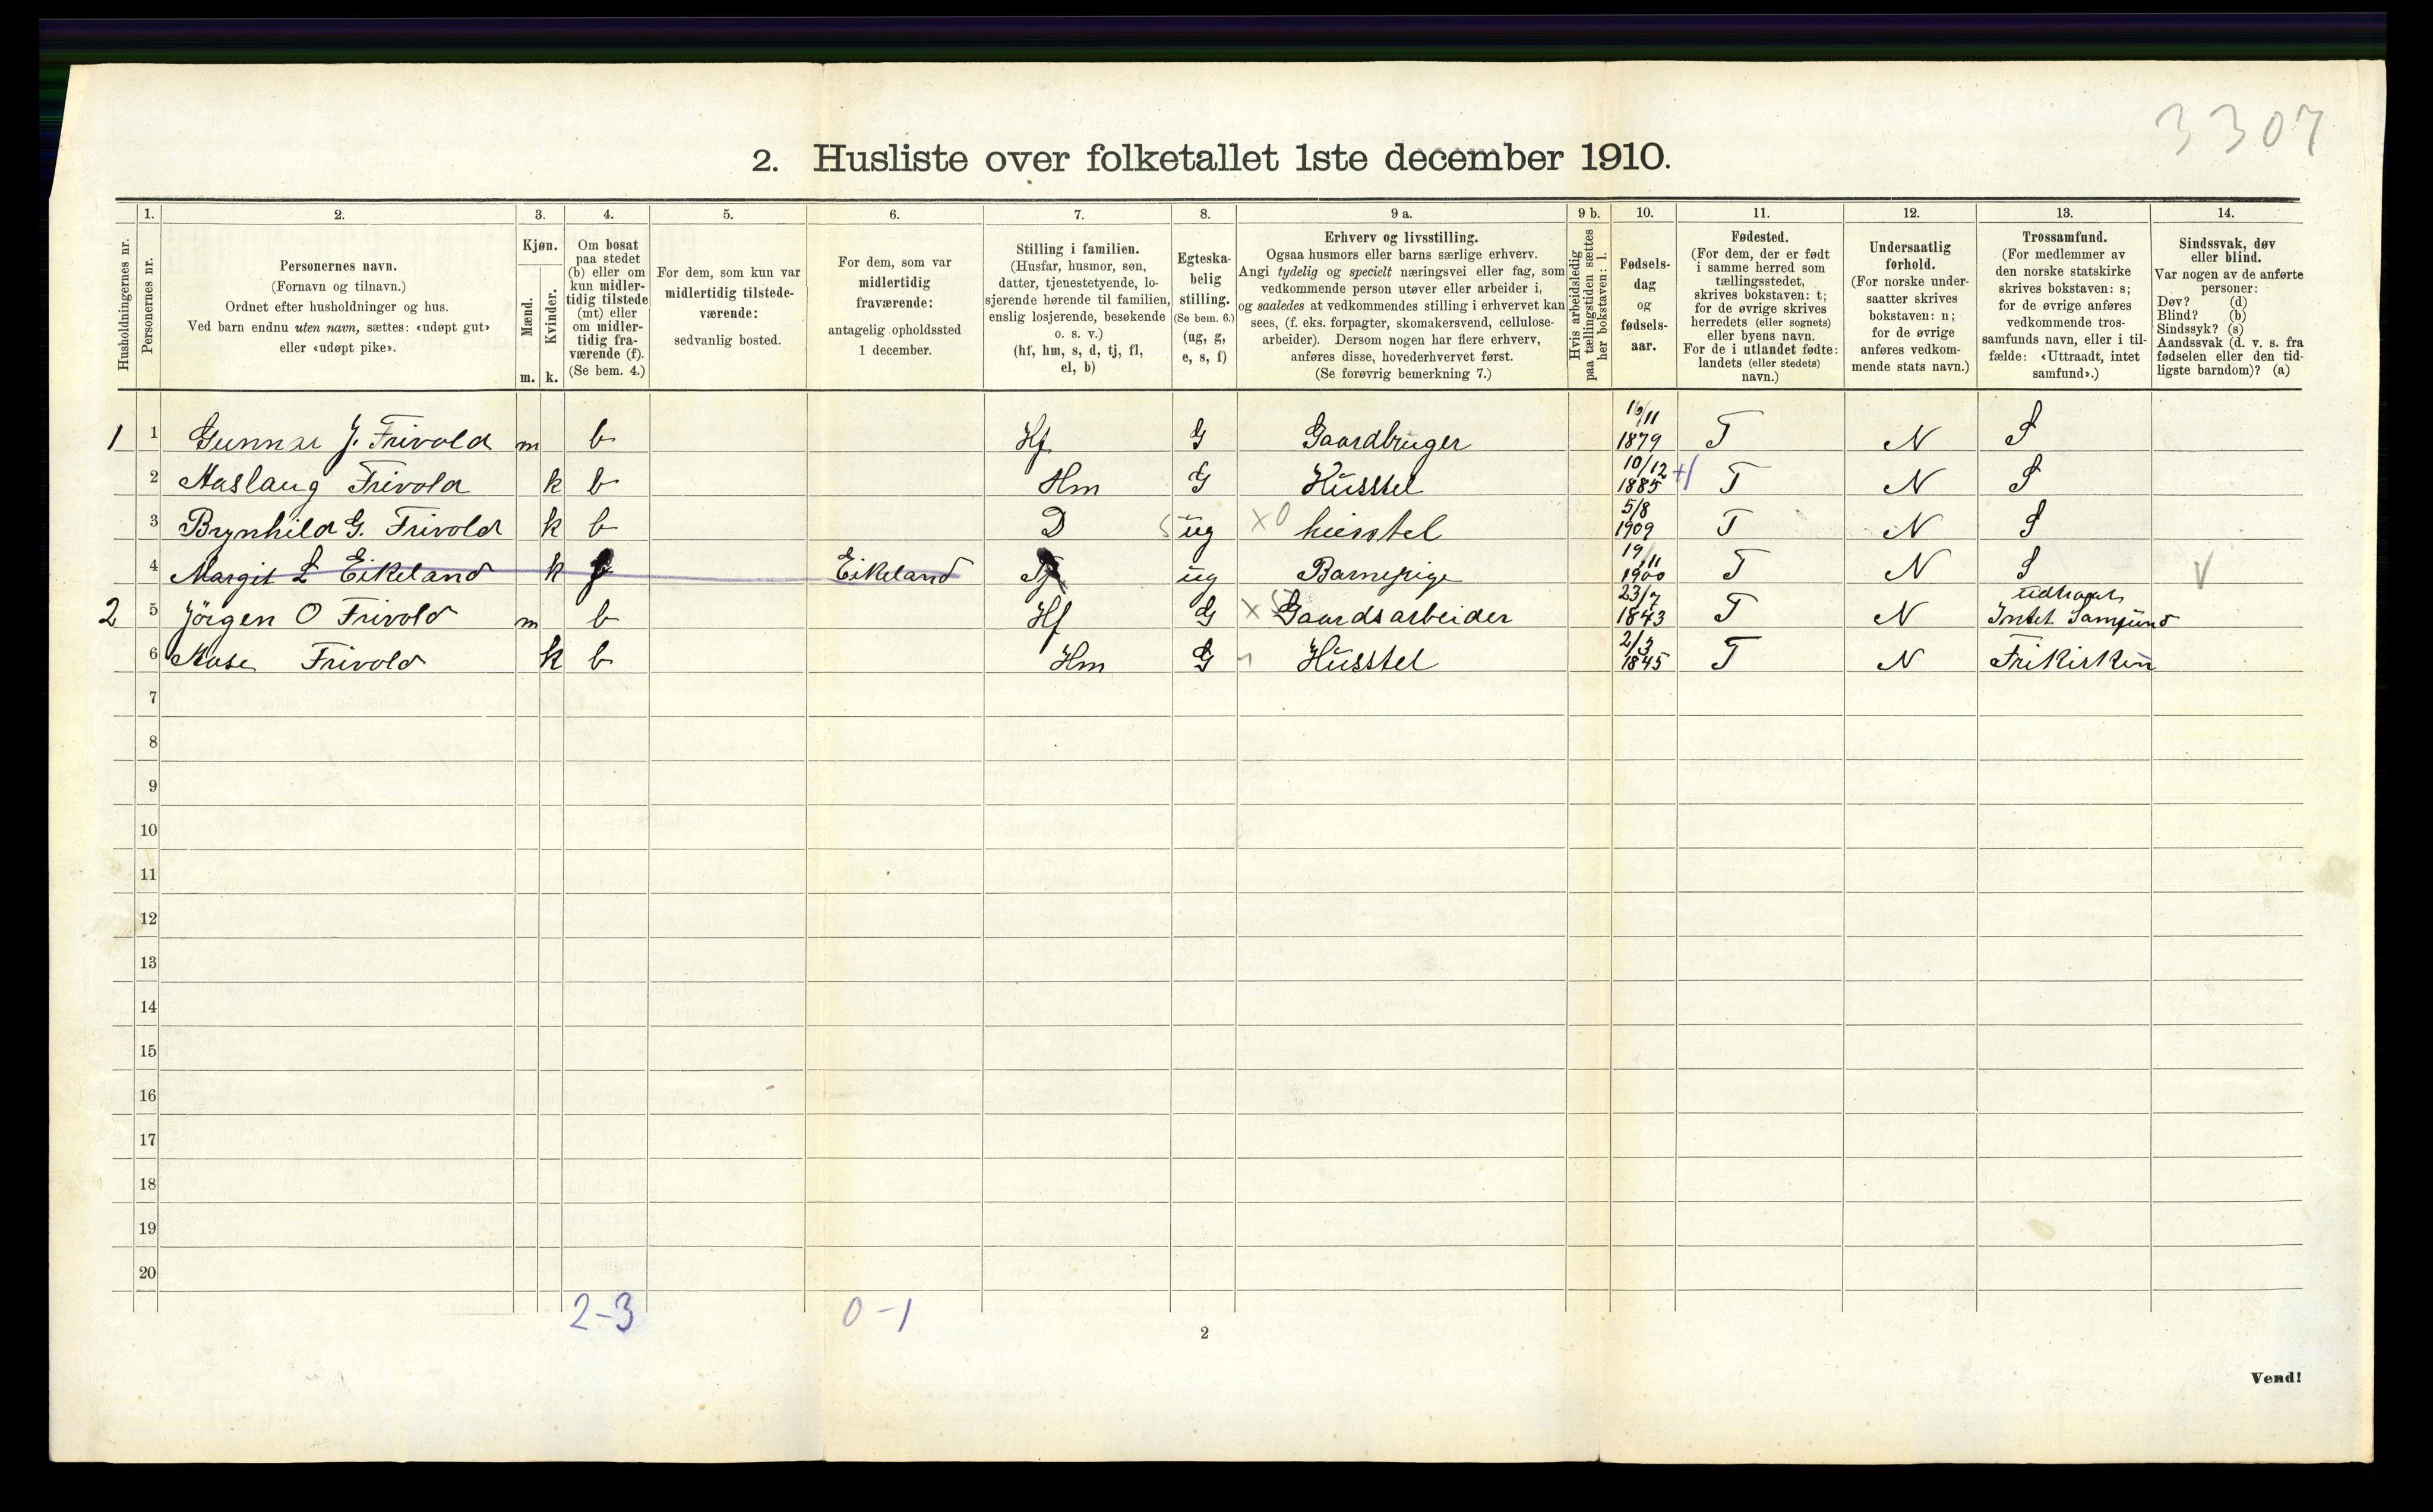 3307
2. Husliste over folketallet 1ste december 1910.
1. 2. 3. 4. 5. 6. 7. 8. 9 a. 9 b. 10. 11. 12. 13. 14.
Husholdningernes nr.
Personernes nr.
Personernes navn.
(Fornavn og tilnavn.)
Ordnet efter husholdninger og hus.
Ved barn endnu uten navn, sættes: «udøpt gut»
eller «udøpt pike».
Kjøn.
Mænd.
Kvinder.
m. k.
Om bosat
paa stedet
(b) eller om
kun midler-
tidig tilstede
(mt) eller
om midler-
tidig fra-
værende (f).
(Se bem. 4.)
For dem, som kun var
midlertidig tilstede-
værende:
sedvanlig bosted.
For dem, som var
midlertidig
fraværende:
antagelig opholdssted
1 december.
Stilling i familien.
(Husfar, husmor, søn,
datter, tjenestetyende, lo-
sjerende hørende til familien,
enslig losjerende, besøkende
o. s. v.)
(hf, hm, s, d, tj, fl,
el, b)
Egteska-
belig
stilling.
(Se bem. 6.)
(ug, g,
e, s, f)
Erhverv og livsstilling.
Ogsaa husmors eller barns særlige erhverv.
Angi tydelig og specielt næringsvei eller fag, som
vedkommende person utøver eller arbeider i,
og saaledes at vedkommendes stilling i erhvervet kan
sees, (f. eks. forpagter, skomakersvend, cellulose-
arbeider). Dersom nogen har flere erhverv,
anføres disse, hovederhvervet først.
(Se forøvrig bemerkning 7.)
Hvis arbeidsledig
paa tællingstiden sættes
her bokstaven: l.
Fødsels-
dag
og
fødsels-
aar.
Fødested.
(For dem, der er født
i samme herred som
tællingsstedet,
skrives bokstaven: t;
for de øvrige skrives
herredets (eller sognets)
eller byens navn.
For de i utlandet fødte:
landets (eller stedets)
navn.)
Undersaatlig
forhold.
(For norske under-
saatter skrives
bokstaven: n;
for de øvrige
anføres vedkom-
mende stats navn.)
Trossamfund.
(For medlemmer av
den norske statskirke
skrives bokstaven: s;
for de øvrige anføres
vedkommende tros-
samfunds navn, eller i til-
fælde: «Uttraadt, intet
samfund».)
Sindssvak, døv
eller blind.
Var nogen av de anførte
personer:
Døv? (d)
Blind? (b)
Sindssyk? (s)
Aandssvak (d. v. s. fra
fødselen eller den tid-
ligste barndom)? (a)
1 1 Gunnar J. Frivold m b Hf G Gaardbruger 16/11 1879 T N S
2 Aaslaug Frivold k b Hm G Husstel 10/12 1885 T N S
3 Brynhild G. Frivold k b D ug x0 husstel 5/8 1909 T N S
4 Margit L Eikeland k f Eikeland Tj ug Barnepige 19/11 1900 T N S V
2 5 Jörgen O Frivold m b Hf G x Gaardsarbeider 23/7 1843 T N udtraat Intet Samfund
6 Aase Frivold k b Hm G Husstel 2/3 1845 T N Frikirken
7
8
9
10
11
12
13
14
15
16
17
18
19
20
2-3 0-1
2
Vend!